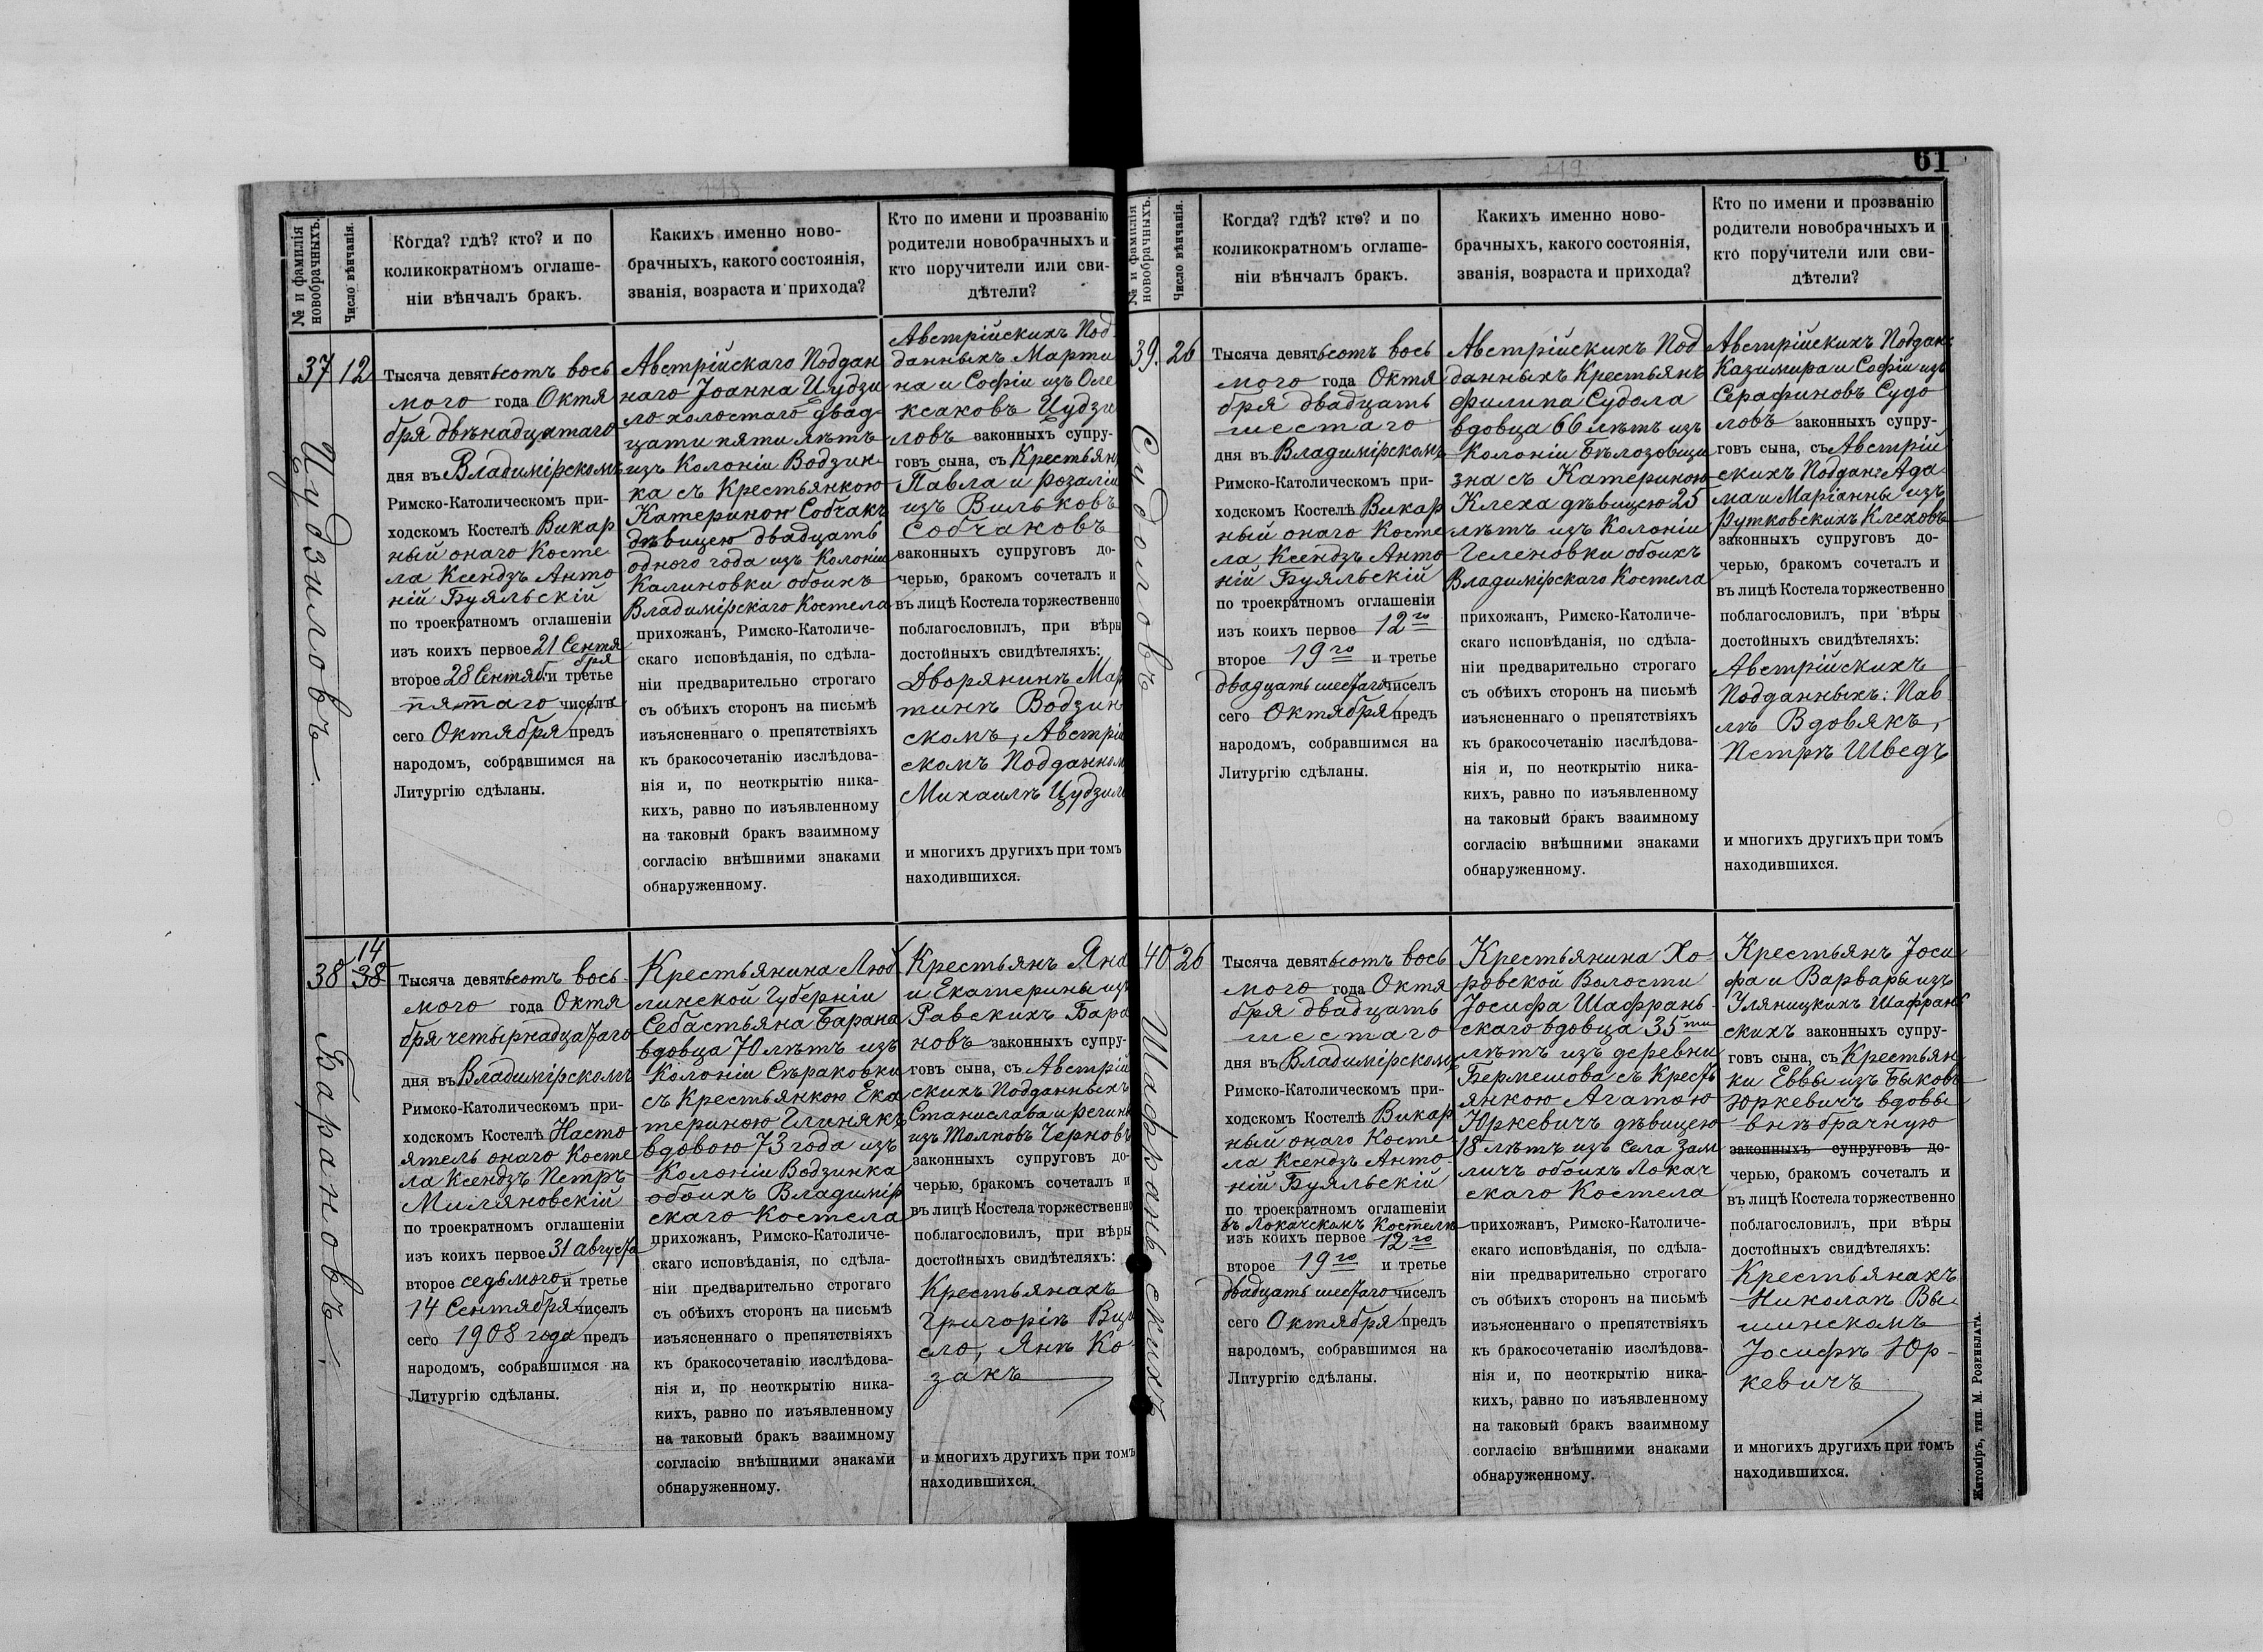 118
№ и фамилія
новобрачныхъ.
Число вѣнчанія.
Когда? гдѣ? кто? и по
коликократномъ оглаше-
ніи вѣнчалъ бракъ.
Какихъ именно ново-
брачныхъ, какого состоянія,
званія, возраста и прихода?
Кто по имени и прозванію
родители новобрачныхъ и
кто поручители или сви-
дѣтели?
37
12
Цудзиловъ.
Тысяча девятьсотъ вось
мого года Октя
бря двѣнадцатаго
дня въ Владимірскомъ
Римско-Католическомъ при-
ходскомъ Костелѣ Викар
ный онаго Косте
ла Ксендзъ Анто
ній Буяльскій
по троекратномъ оглашеніи
изъ коихъ первое 21 Сентя
бря
второе 28 Сентяб. и третье
пятаго числъ
сего Октября предъ
народомъ, собравшимся на
Литургію сдѣланы.
Австрійскаго Поддан
наго Іоанна Цудзи
ло холостаго двад-
цати пяти лѣтъ
изъ Колоніи Водзин-
ка съ Крестьянкою
Катериною Собчакъ
дѣвицею двадцать
одного года изъ Колоніи
Калиновки обоихъ
Владимірскаго Костела
прихожанъ, Римско-Католиче-
скаго исповѣданія, по сдѣла-
ніи предварительно строгаго
съ обѣихъ сторонъ на письмѣ
изъясненнаго о препятствіяхъ
къ бракосочетанію изслѣдова-
нія и, по неоткрытію ника-
кихъ, равно по изъявленному
на таковый бракъ взаимному
согласію внѣшними знаками
обнаруженному.
Австрійскихъ Под
данныхъ Марти
на и Софіи изъ Оле
ксаковъ Цудзи
ловъ законныхъ супру-
говъ сына, съ Крестьян
Павла и Розаліи
изъ Вильковъ
Собчаковъ
законныхъ супруговъ до-
черью, бракомъ сочеталъ и
въ лицѣ Костела торжественно
поблагословилъ, при вѣры
достойныхъ свидѣтеляхъ:
Дворянинѣ Мар
тинѣ Водзин
скомъ, Австрій
скомъ Подданном
Михаилѣ Цудзило
и многихъ другихъ при томъ
находившихся.
38
14
38
Барановъ.
Тысяча девятьсотъ вось
мого года Октя
бря четырнадцатаго
дня въ Владимірскомъ
Римско-Католическомъ при-
ходскомъ Костелѣ Насто
ятель онаго Косте
ла Ксендзъ Петръ
Миляновскій
по троекратномъ оглашеніи
изъ коихъ первое 31 августа
второе седьмого и третье
14 Сентября числъ
сего 1908 года предъ
народомъ, собравшимся на
Литургію сдѣланы.
Крестьянина Люб
линской Губерніи
Себастьяна Барана
вдовца 70 лѣтъ изъ
Колоніи Сѣраковки
съ Крестьянкою Ека
териною Глинякъ
вдовою 73 года изъ
Колоніи Водзинка
обоихъ Владимір
скаго Костела
прихожанъ, Римско-Католиче-
скаго исповѣданія, по сдѣла-
ніи предварительно строгаго
съ обѣихъ сторонъ на письмѣ
изъясненнаго о препятствіяхъ
къ бракосочетанію изслѣдова-
нія и, по неоткрытію ника-
кихъ, равно по изъявленному
на таковый бракъ взаимному
согласію внѣшними знаками
обнаруженному.
Крестьянъ Яна
и Екатерины изъ
Равскихъ Бара
новъ законныхъ супру-
говъ сына, съ Австрій
скихъ Подданныхъ
Станислава и Регины
изъ Толповъ Черновъ
законныхъ супруговъ до-
черью, бракомъ сочеталъ и
въ лицѣ Костела торжественно
поблагословилъ, при вѣры
достойныхъ свидѣтеляхъ:
Крестьянахъ
Григоріѣ Виц
ело, Янѣ Ко-
закъ
и многихъ другихъ при томъ
находившихся.
119
61
№ и фамилія
новобрачныхъ.
Число вѣнчанія.
Когда? гдѣ? кто? и по
коликократномъ оглаше-
ніи вѣнчалъ бракъ.
Какихъ именно ново-
брачныхъ, какого состоянія,
званія, возраста и прихода?
Кто по имени и прозванію
родители новобрачныхъ и
кто поручители или сви-
дѣтели?
39.
26
Судоловъ
Тысяча девятьсотъ вось
мого года Октя
бря двадцать
шестаго
дня въ Владимірскомъ
Римско-Католическомъ при-
ходскомъ Костелѣ Викар
ный онаго Косте
ла Ксендзъ Анто
ній Буяльскій
по троекратномъ оглашеніи
изъ коихъ первое 12го
второе 19го и третье
двадцать шестаго числъ
сего Октября предъ
народомъ, собравшимся на
Литургію сдѣланы.
Австрійскихъ Под
данныхъ Крестьянъ
Филипа Судола
вдовца 66 лѣтъ изъ
Колоніи Бѣлозовщи
зна съ Катериною
Клеха дѣвицею 25
лѣтъ изъ Колоніи
Геленовки обоихъ
Владимірскаго Костела
прихожанъ, Римско-Католиче-
скаго исповѣданія, по сдѣла-
ніи предварительно строгаго
съ обѣихъ сторонъ на письмѣ
изъясненнаго о препятствіяхъ
къ бракосочетанію изслѣдова-
нія и, по неоткрытію ника-
кихъ, равно по изъявленному
на таковый бракъ взаимному
согласію внѣшними знаками
обнаруженному.
Австрійскихъ Поддан:
Казимира и Софіи изъ
Серафиновъ Судо
ловъ законныхъ супру-
говъ сына, съ Австрій
скихъ Поддан: Ада
ма и Маріанны изъ
Рутковскихъ Клеховъ
законныхъ супруговъ до-
черью, бракомъ сочеталъ и
въ лицѣ Костела торжественно
поблагословилъ, при вѣры
достойныхъ свидѣтеляхъ:
Австрійскихъ
Подданныхъ: Пав
лѣ Вдовякъ,
Петрѣ Шведъ
и многихъ другихъ при томъ
находившихся.
40
26
Шафраньскихъ
Тысяча девятьсотъ вось
мого года Октя
бря двадцать
шестаго
дня въ Владимірскомъ
Римско-Католическомъ при-
ходскомъ Костелѣ Викар
ный онаго Косте
ла Ксендзъ Анто-
ній Буяльскій
по троекратномъ оглашеніи
въ Локачскомъ Костелѣ
изъ коихъ первое 12го
второе 19го и третье
двадцать шестаго числъ
сего Октября предъ
народомъ, собравшимся на
Литургію сдѣланы.
Крестьянина Хо
ровской Волости
Іосифа Шафрань-
скаго вдовца 35ти
лѣтъ изъ деревни
Бермешова съ Кресть
янкою Агатою
Юркевичъ дѣвицею
18 лѣтъ изъ села Зам
личъ обоихъ Локач
скаго Костела
прихожанъ, Римско-Католиче-
скаго исповѣданія, по сдѣла-
ніи предварительно строгаго
съ обѣихъ сторонъ на письмѣ
изъясненнаго о препятствіяхъ
къ бракосочетанію изслѣдова-
нія и, по неоткрытію ника-
кихъ, равно по изъявленному
на таковый бракъ взаимному
согласію внѣшними знаками
обнаруженному.
Крестьянъ Іоси
фа и Варвары изъ
Уляницкихъ Шафрань
скихъ законныхъ супру-
говъ сына, съ Крестьян
ки Еввы изъ Быковъ
Юркевичъ вдовы
внѣбрачную
законныхъ супруговъ до-
черью, бракомъ сочеталъ и
въ лицѣ Костела торжественно
поблагословилъ, при вѣры
достойныхъ свидѣтеляхъ:
Крестьянахъ
Николаѣ Вы
шинскомъ
Іосифѣ Юр-
кевичъ
и многихъ другихъ при томъ
находившихся.
Житоміръ, тип. М. Розенблата.